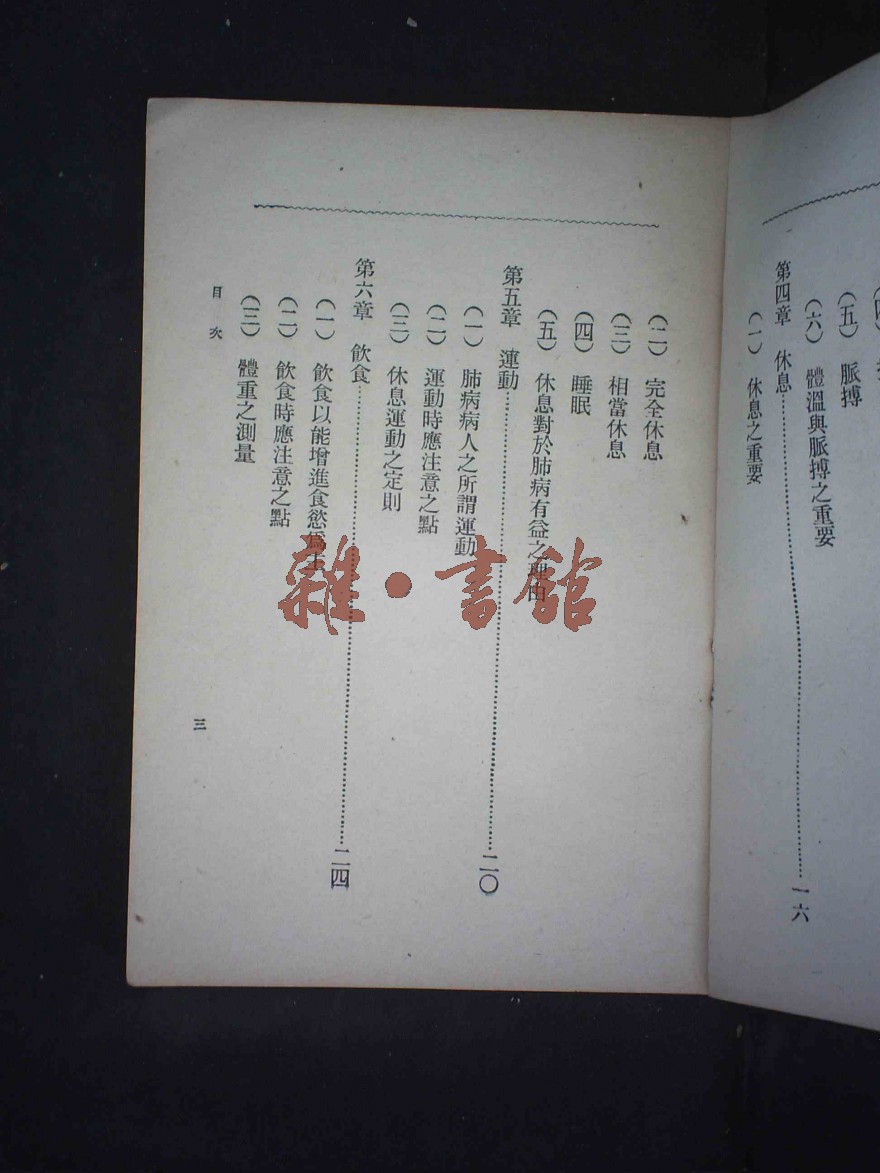 （五） 脈搏
（六） 體溫與脈搏之重要
第四章 休息……一六
（一） 休息之重要
（二） 完全休息
（三） 相當休息
（四） 睡眠
（五） 休息對於肺病有益之理由
第五章 運動……二〇
（一） 肺病病人之所謂運動
（二） 運動時應注意之點
（三） 休息運動之定則
第六章 飲食……二四
（一） 飲食以能增進食慾爲主
（二） 飲食時應注意之點
（三） 體重之測量
目次
三
雜·書館